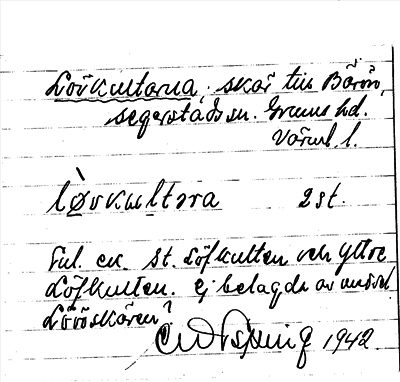 Lövkultarna, skär till Bärön,
Segerstads sn. Grums hd.
Värml. l.
løvkultəra 2 st.
Enl. ek. St. Löfkulten och Yttre
Löfkulten. Ej belagda av
Lövöskären?
1942